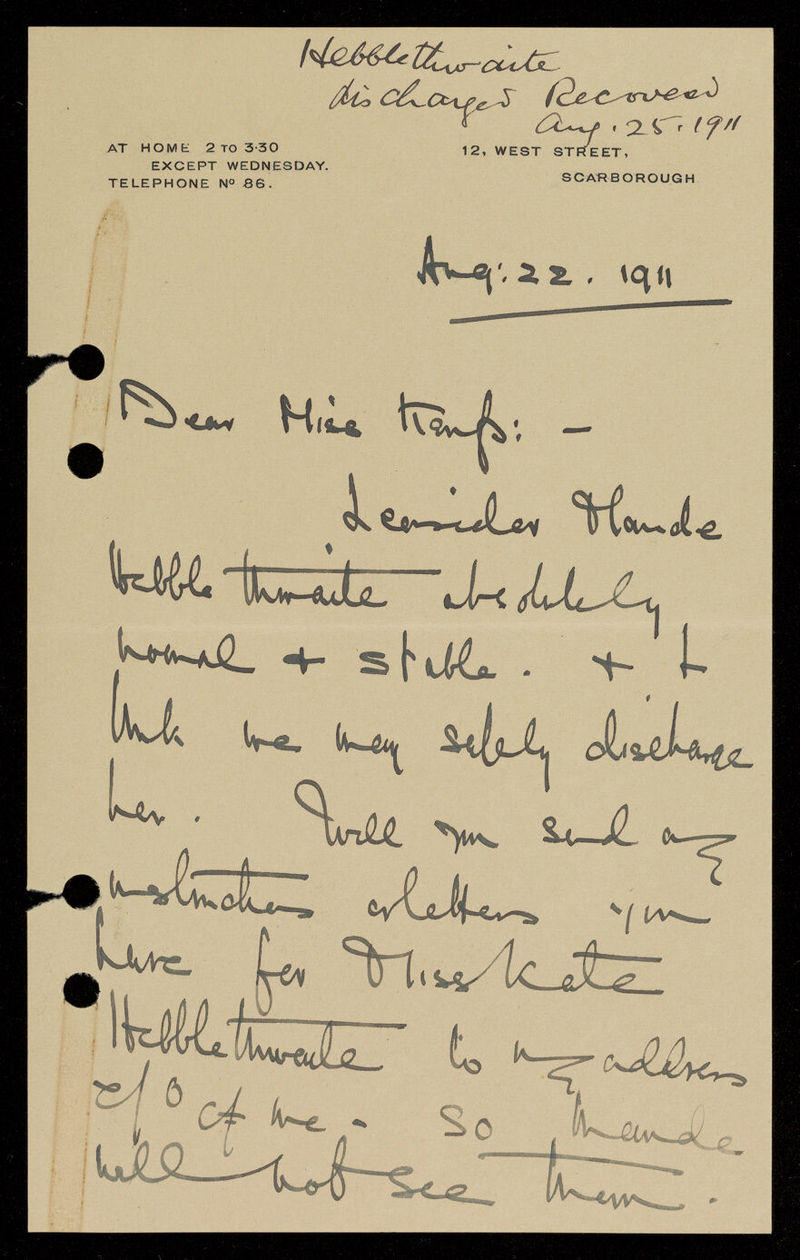 Hebblethwaite
discharged Recovered
Aug. 25. 1911
AT HOME 2 TO 3·30
EXCEPT WEDNESDAY.
TELEPHONE Nº 86.
12, WEST STREET,
SCARBOROUGH
Aug: 22. 1911
Dear Miss : —
I consider Maude
Hebblethwaite absolutely
normal + stable. + I
think we may safely discharge
her. Will you send any
instructions or letters you
have for Miss Kate
Hebblethwaite to my address
c/o of me - so Maude
will not see them.